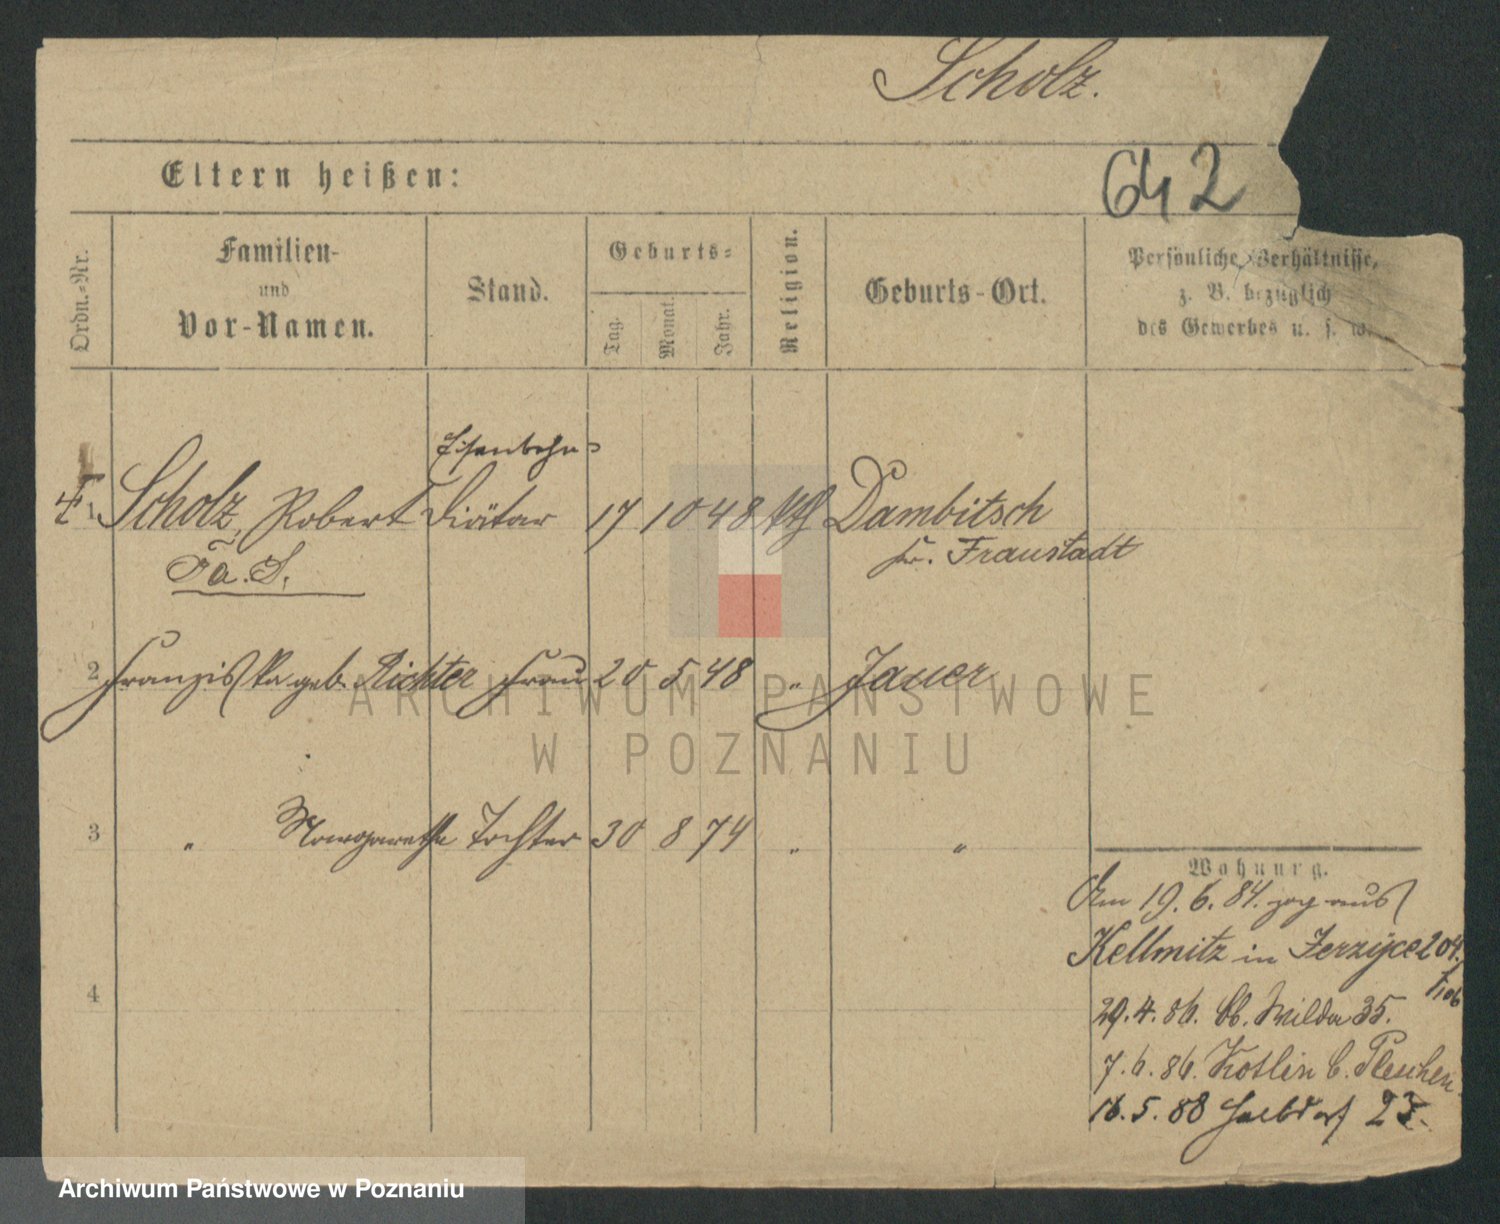 Scholz.
642
Eltern heißen:
Ordn.-Nr.
Familien-
und
Vor-Namen.
Stand.
Geburts-
Tag.
Monat.
Jahr.
Religion.
Geburts-Ort.
Persönliche Verhältnisse,
z. B. bezüglich
des Gewerbes u. s. w.
Eisenbahn-
1 Scholz, Robert Diätar 17 10 48 kth Dambitsch
Fa. S. kr. Fraustadt
2 Franziska geb. Richter Frau 20 5 48 " Jauer
3 " Margarethe Tochter 30 8 74 " "
4
Wohnung.
Am 19. 6. 84. zog aus
Kellmitz in Jerzyce 204.
29. 4. 86. Ob. Wilda 35.
7. 6. 86. Kotlin b. Pleschen.
16. 5. 88 Halbdorf 23.
ARCHIWUM PAŃSTWOWE
W POZNANIU
Archiwum Państwowe w Poznaniu